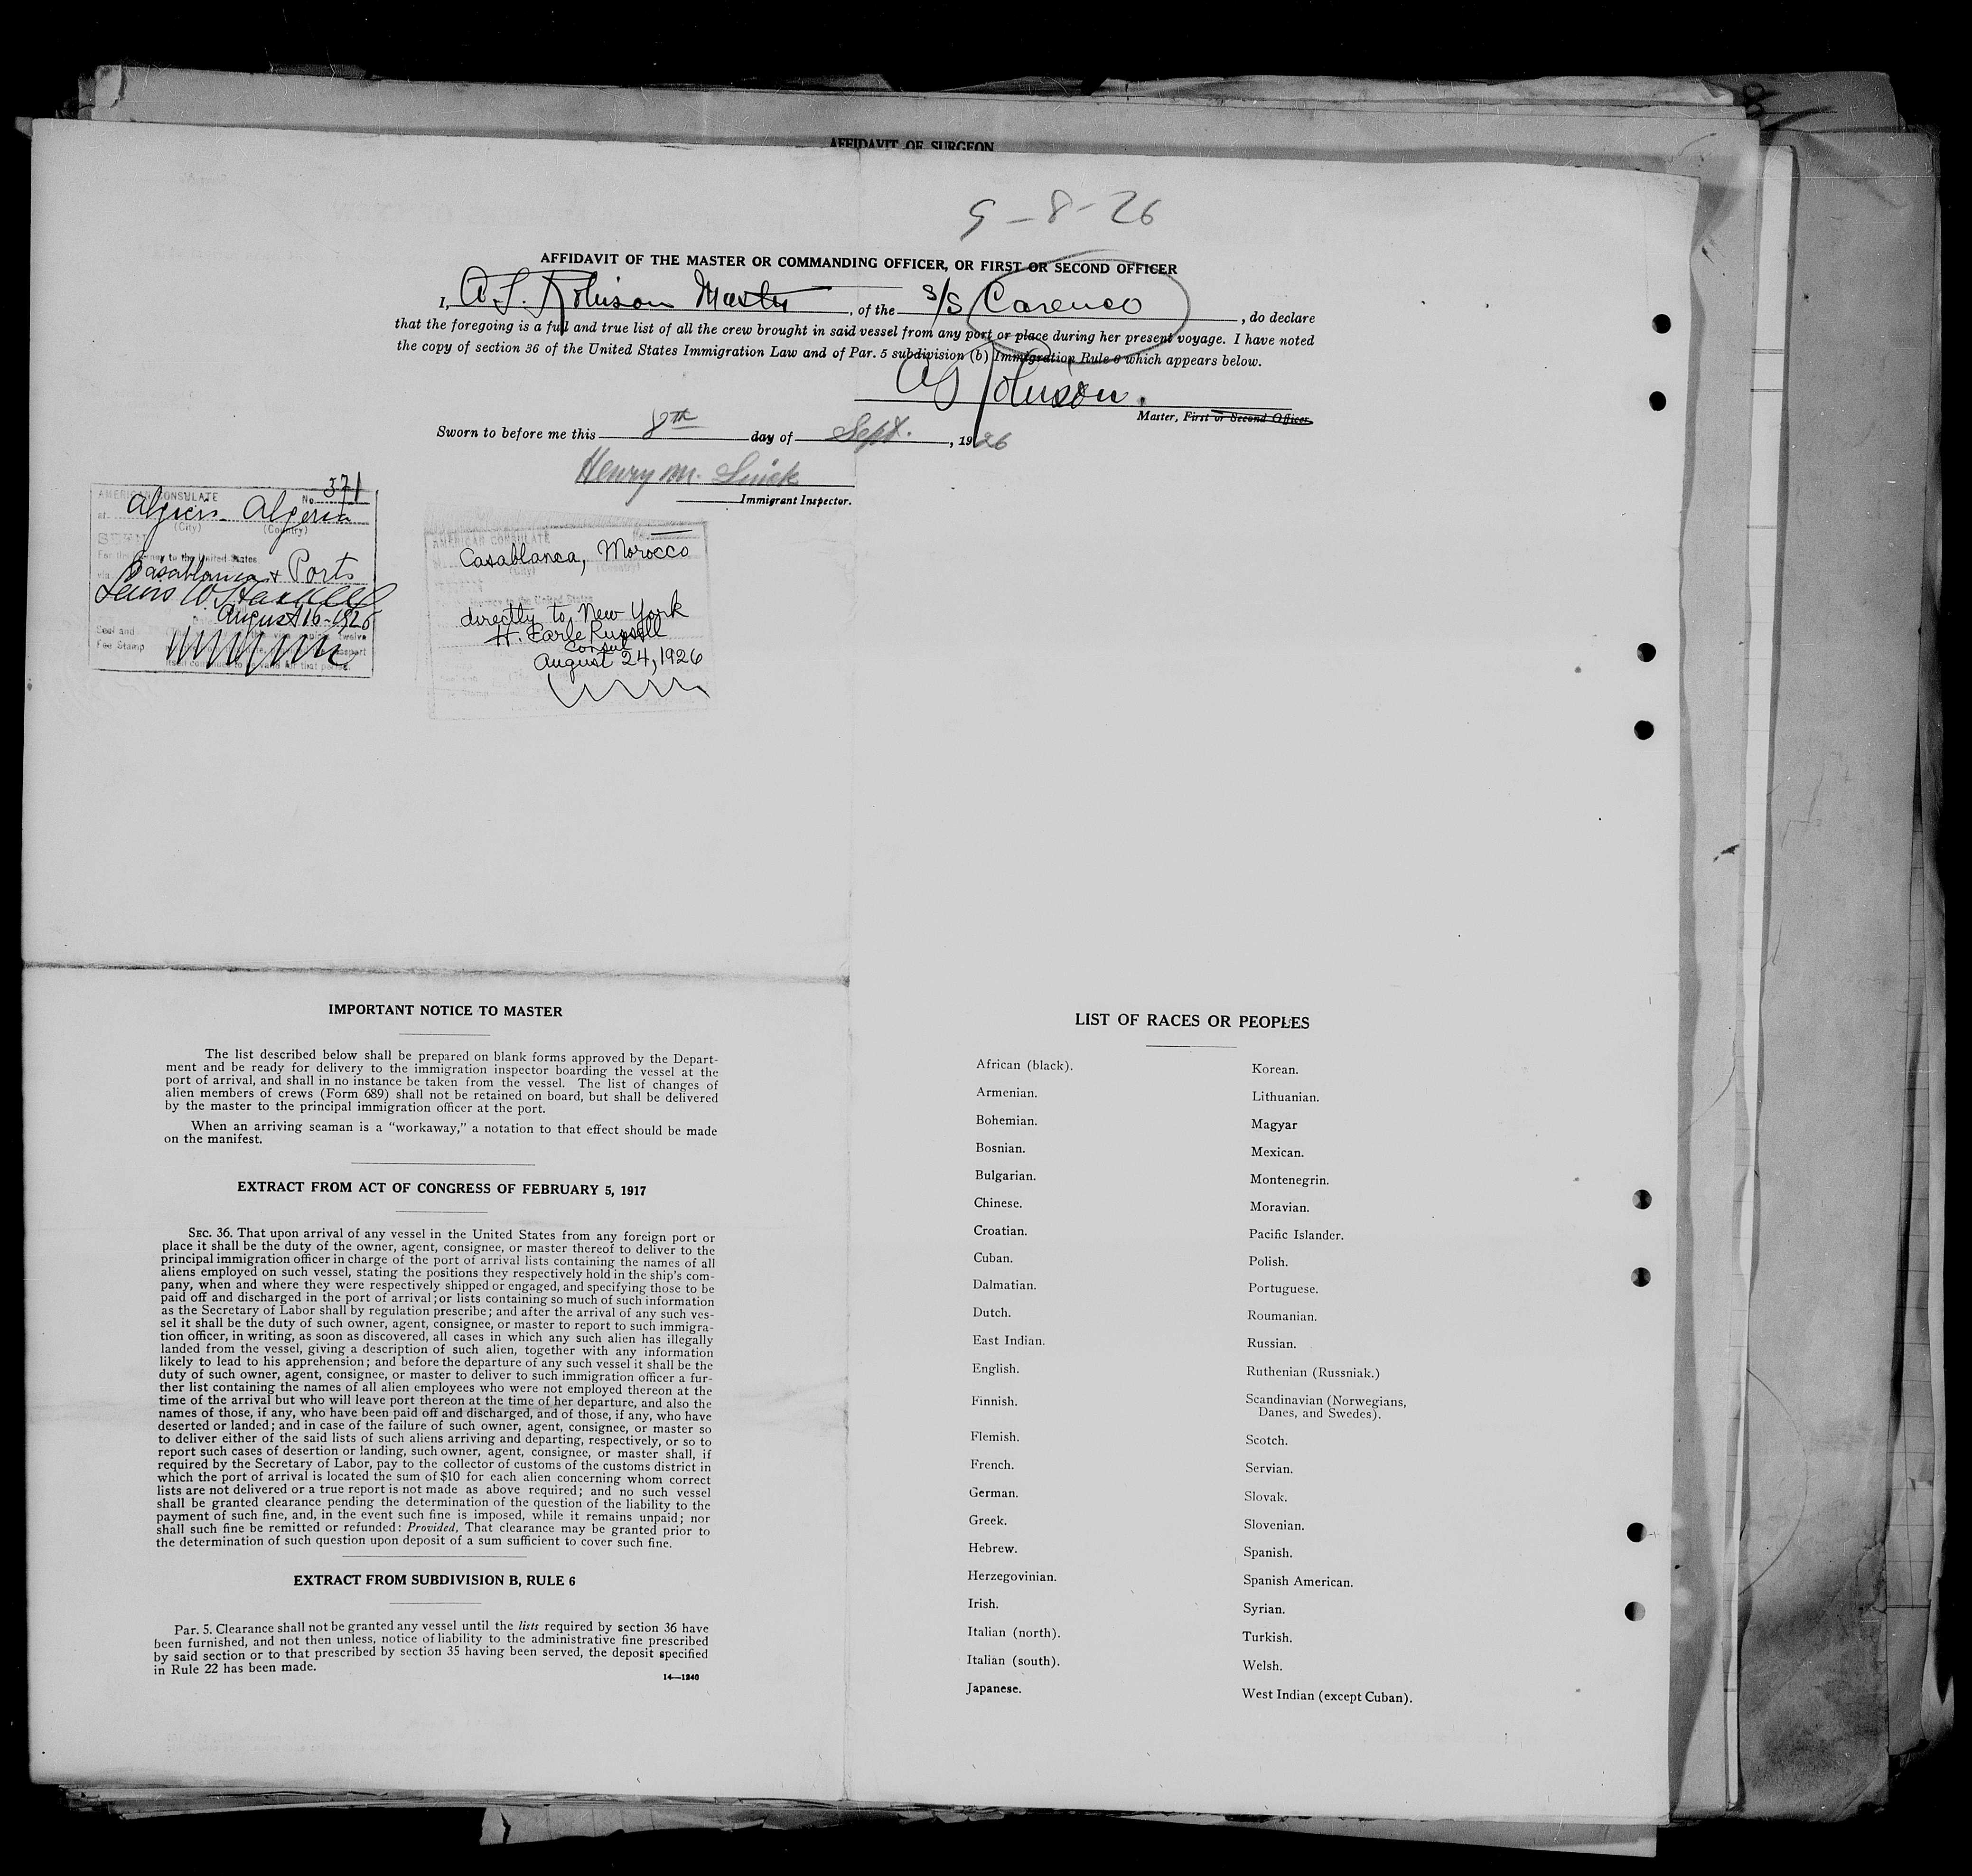 AFFIDAVIT OF SURGEON
9-8-26
AFFIDAVIT OF THE MASTER OR COMMANDING OFFICER, OR FIRST OR SECOND OFFICER
I, Master, of the S/S Carenco, do declare
that the foregoing is a full and true list of all the crew brought in said vessel from any port or place during her present voyage. I have noted
the copy of section 36 of the United States Immigration Law and of Par. 5 subdivision (b) Immigration Rule 6 which appears below.
Master, First or Second Officer
Sworn to before me this 8th day of Sept., 1926
Henry M.
Immigrant Inspector.
AMERICAN CONSULATE No. 371
at Algiers Algeria
(City) (Country)
SEEN
For the journey to the United States
via Casablanca & Ports
Lewis W. Haskell
August 16-1926
Seal and
Fee Stamp
AMERICAN CONSULATE
Casablanca, Morocco
(City) (Country)
directly to New York
H. Earle Russell
Consul
August 24, 1926
IMPORTANT NOTICE TO MASTER
The list described below shall be prepared on blank forms approved by the Depart-
ment and be ready for delivery to the immigration inspector boarding the vessel at the
port of arrival, and shall in no instance be taken from the vessel. The list of changes of
alien members of crews (Form 689) shall not be retained on board, but shall be delivered
by the master to the principal immigration officer at the port.
When an arriving seaman is a "workaway," a notation to that effect should be made
on the manifest.
EXTRACT FROM ACT OF CONGRESS OF FEBRUARY 5, 1917
SEC. 36. That upon arrival of any vessel in the United States from any foreign port or
place it shall be the duty of the owner, agent, consignee, or master thereof to deliver to the
principal immigration officer in charge of the port of arrival lists containing the names of all
aliens employed on such vessel, stating the positions they respectively hold in the ship's com-
pany, when and where they were respectively shipped or engaged, and specifying those to be
paid off and discharged in the port of arrival; or lists containing so much of such information
as the Secretary of Labor shall by regulation prescribe; and after the arrival of any such ves-
sel it shall be the duty of such owner, agent, consignee, or master to report to such immigra-
tion officer, in writing, as soon as discovered, all cases in which any such alien has illegally
landed from the vessel, giving a description of such alien, together with any information
likely to lead to his apprehension; and before the departure of any such vessel it shall be the
duty of such owner, agent, consignee, or master to deliver to such immigration officer a fur-
ther list containing the names of all alien employees who were not employed thereon at the
time of the arrival but who will leave port thereon at the time of her departure, and also the
names of those, if any, who have been paid off and discharged, and of those, if any, who have
deserted or landed; and in case of the failure of such owner, agent, consignee, or master so
to deliver either of the said lists of such aliens arriving and departing, respectively, or so to
report such cases of desertion or landing, such owner, agent, consignee, or master shall, if
required by the Secretary of Labor, pay to the collector of customs of the customs district in
which the port of arrival is located the sum of $10 for each alien concerning whom correct
lists are not delivered or a true report is not made as above required; and no such vessel
shall be granted clearance pending the determination of the question of the liability to the
payment of such fine, and, in the event such fine is imposed, while it remains unpaid; nor
shall such fine be remitted or refunded: Provided, That clearance may be granted prior to
the determination of such question upon deposit of a sum sufficient to cover such fine.
EXTRACT FROM SUBDIVISION B, RULE 6
Par. 5. Clearance shall not be granted any vessel until the lists required by section 36 have
been furnished, and not then unless, notice of liability to the administrative fine prescribed
by said section or to that prescribed by section 35 having been served, the deposit specified
in Rule 22 has been made.
14—1240
LIST OF RACES OR PEOPLES
African (black).
Armenian.
Bohemian.
Bosnian.
Bulgarian.
Chinese.
Croatian.
Cuban.
Dalmatian.
Dutch.
East Indian.
English.
Finnish.
Flemish.
French.
German.
Greek.
Hebrew.
Herzegovinian.
Irish.
Italian (north).
Italian (south).
Japanese.
Korean.
Lithuanian.
Magyar
Mexican.
Montenegrin.
Moravian.
Pacific Islander.
Polish.
Portuguese.
Roumanian.
Russian.
Ruthenian (Russniak.)
Scandinavian (Norwegians,
Danes, and Swedes).
Scotch.
Servian.
Slovak.
Slovenian.
Spanish.
Spanish American.
Syrian.
Turkish.
Welsh.
West Indian (except Cuban).